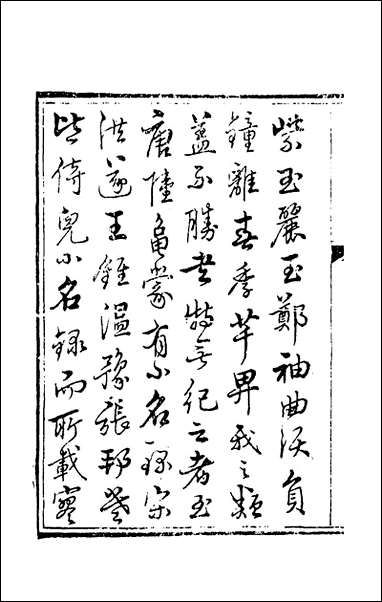 紫玉麗玉鄭袖曲沃負
鐘離春季芊畀我之類
蓋不勝書特無紀之者至
唐陸龜蒙有小名錄宋
洪遂王銍溫豫張邦幾
皆侍兒小名錄而所載寥